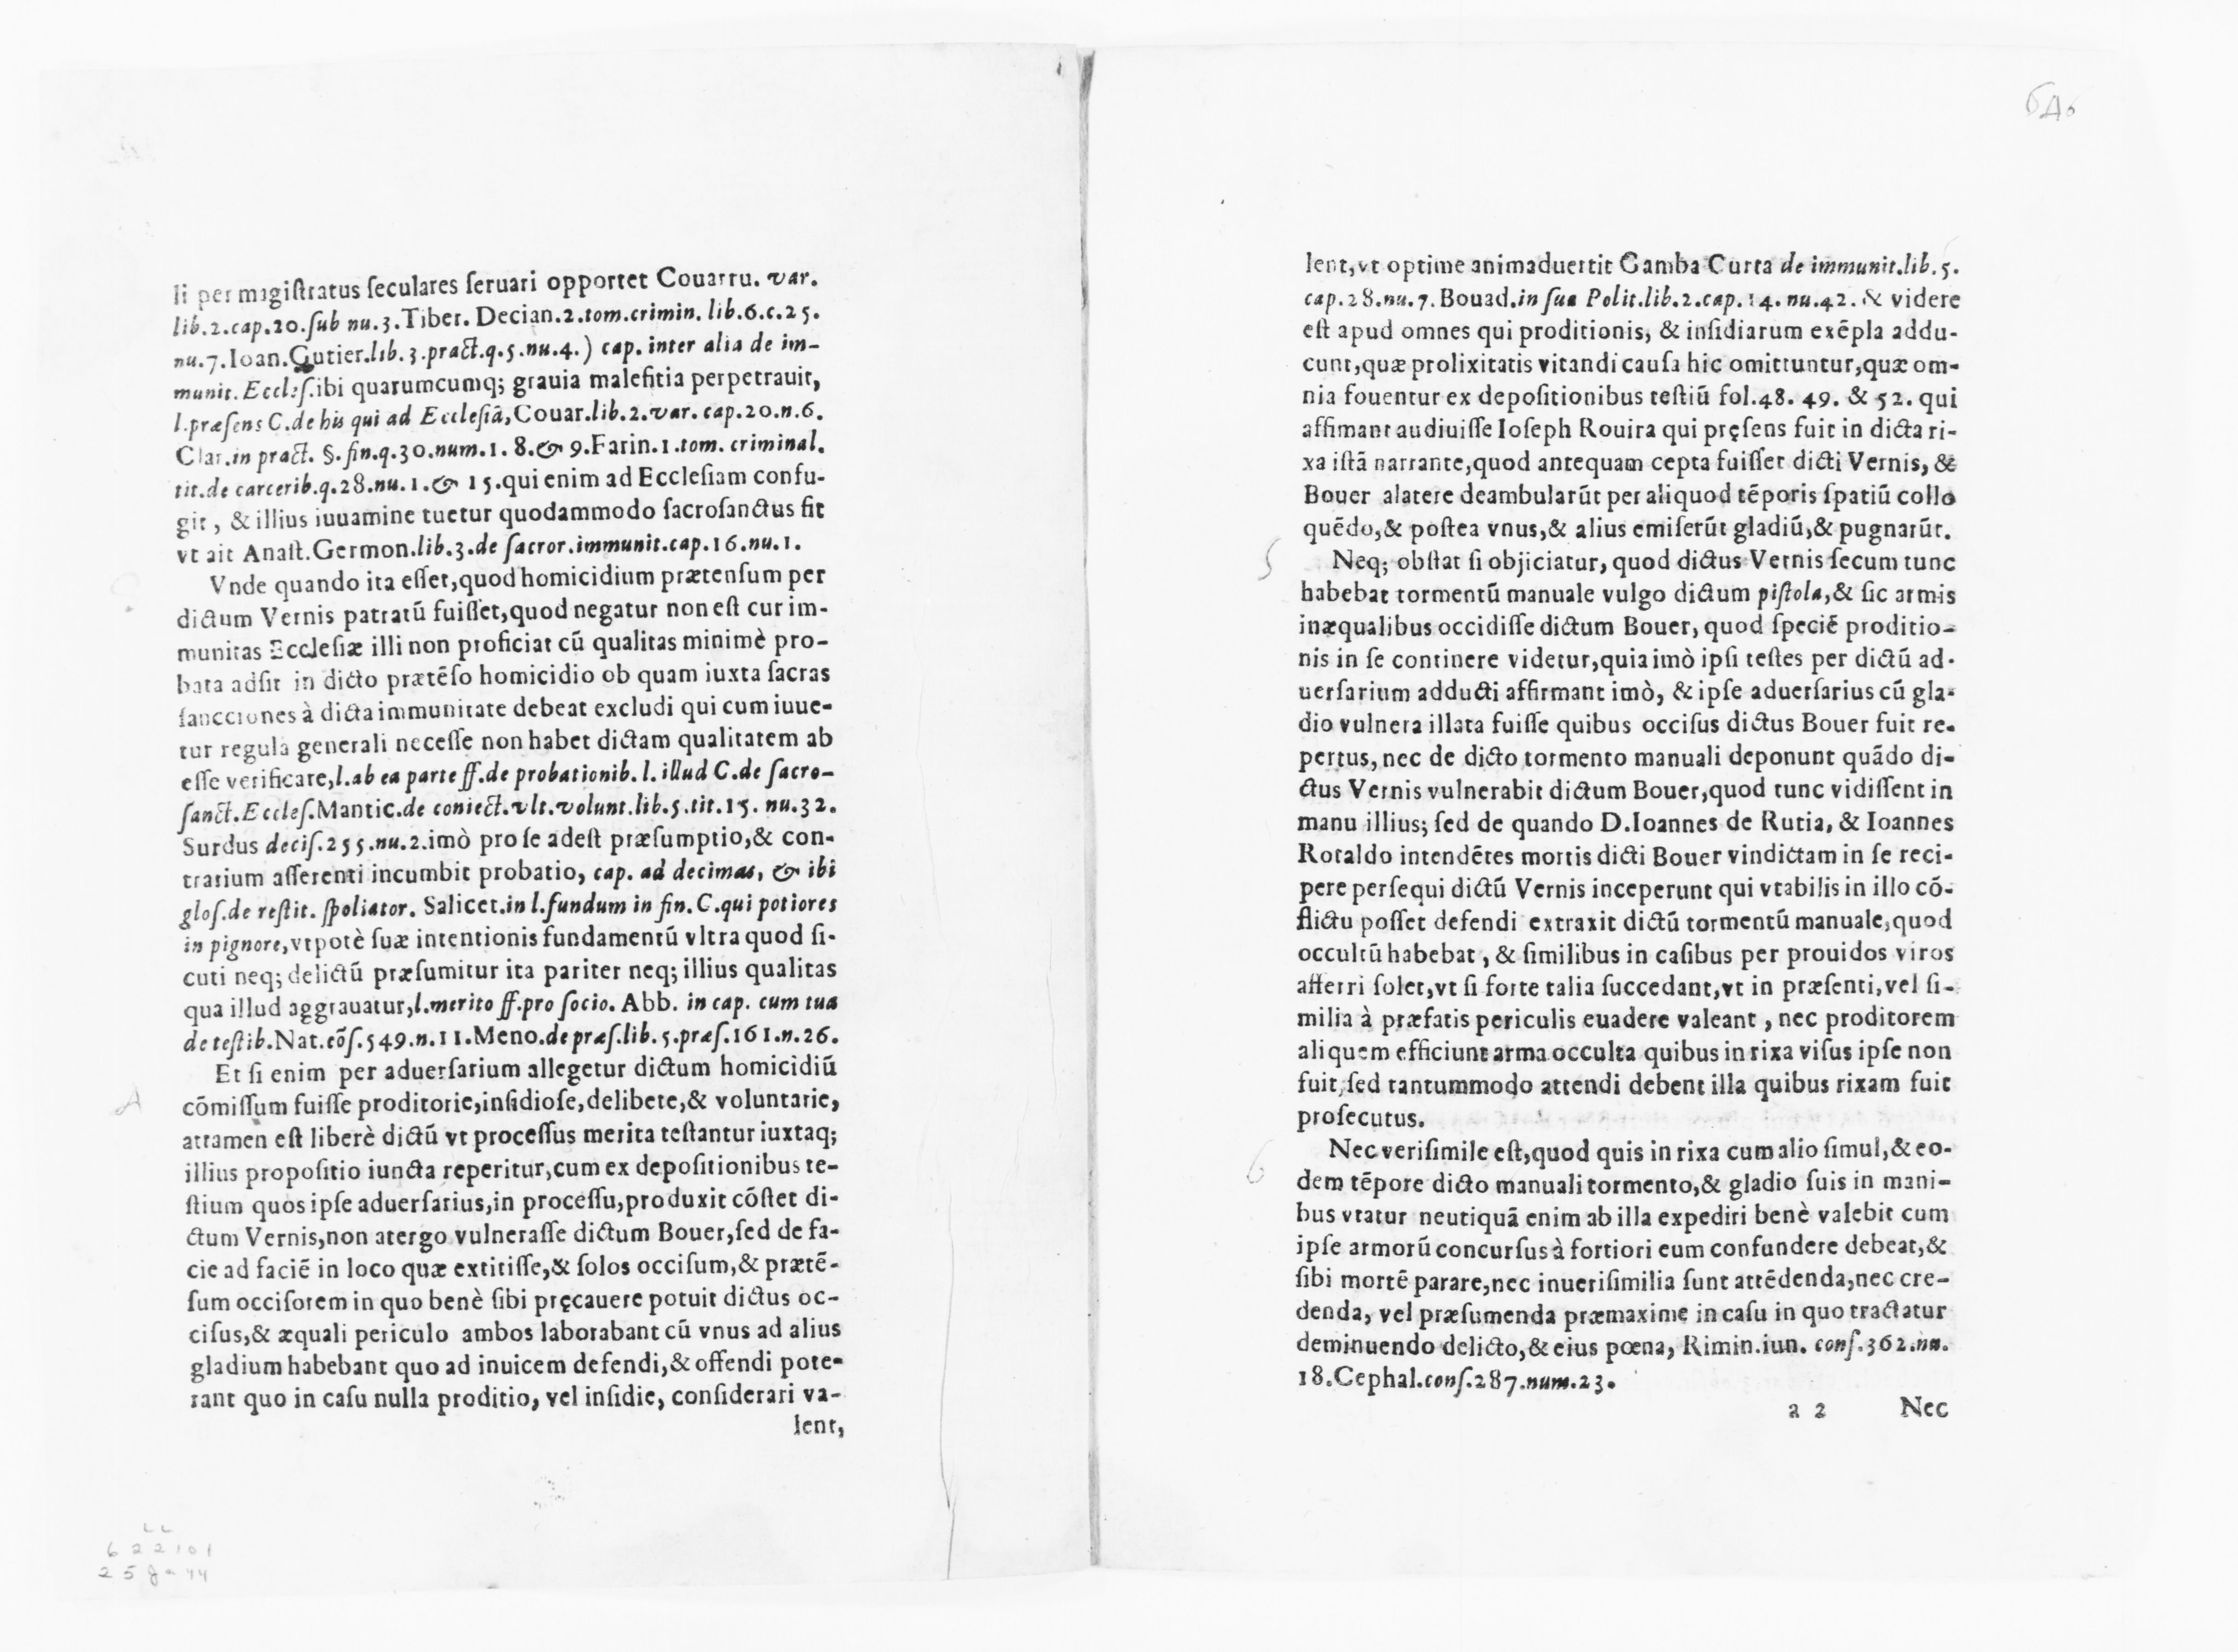 li per magiſtratus ſeculares ſeruari opportet Couarru. var.
lib.2.cap.20.ſub nu.3.Tiber. Decian.2.tom.crimin. lib.6.c.25.
nu.7.Ioan.Gutier.lib.3.pract.q.5.nu.4.) cap. inter alia de im-
munit. Eccleſ.ibi quarumcumq; grauia malefitia perpetrauit,
l.præſens C.de his qui ad Eccleſiā,Couar.lib.2.var. cap.20.n.6.
Clar.in pract. §. fin.q.30.num.1. 8.& 9.Farin.1.tom. criminal.
tit.de carcerib.q.28.nu.1.& 15.qui enim ad Eccleſiam confu-
git, & illius iuuamine tuetur quodammodo ſacroſanctus fit
vt ait Anaſt.Germon.lib.3.de ſacror.immunit.cap.16.nu.1.
Vnde quando ita eſſet,quod homicidium prætenſum per
dictum Vernis patratū fuiſſet,quod negatur non eſt cur im-
munitas Eccleſiæ illi non proficiat cū qualitas minimè pro-
bata adſit in dicto prætēſo homicidio ob quam iuxta ſacras
ſancciones à dicta immunitate debeat excludi qui cum iuue-
tur regula generali neceſſe non habet dictam qualitatem ab
eſſe verificare,l.ab ea parte ff.de probationib. l. illud C.de ſacro-
ſanct.Eccleſ.Mantic.de coniect.vlt.volunt.lib.5.tit.15. nu.32.
Surdus deciſ.255.nu.2.imò pro ſe adeſt præſumptio,& con-
trarium aſſerenti incumbit probatio, cap. ad decimas, & ibi
gloſ.de reſtit. ſpoliator. Salicet.in l.fundum in fin. C.qui potiores
in pignore,vtpotè ſuæ intentionis fundamentū vltra quod ſi-
cuti neq; delictū præſumitur ita pariter neq; illius qualitas
qua illud aggrauatur,l.merito ff.pro ſocio. Abb. in cap. cum tua
de teſtib.Nat.cōſ.549.n.11.Meno.de præſ.lib.5.præſ.161.n.26.
Et ſi enim per aduerſarium allegetur dictum homicidiū
cōmiſſum fuiſſe proditorie,inſidioſe,delibete,& voluntarie,
attamen eſt liberè dictū vt proceſſus merita teſtantur iuxtaq;
illius propoſitio iuncta reperitur,cum ex depoſitionibus te-
ſtium quos ipſe aduerſarius,in proceſſu,produxit cōſtet di-
ctum Vernis,non atergo vulneraſſe dictum Bouer,ſed de fa-
cie ad faciē in loco quæ extitiſſe,& ſolos occiſum,& prætē-
ſum occiſorem in quo benè ſibi pręcauere potuit dictus oc-
ciſus,& æquali periculo ambos laborabant cū vnus ad alius
gladium habebant quo ad inuicem defendi,& offendi pote-
rant quo in caſu nulla proditio, vel inſidie, conſiderari va-
lent,
6A6
lent,vt optime animaduertit Gamba Curta de immunit.lib.5.
cap.28.nu.7.Bouad.in ſua Polit.lib.2.cap.14. nu.42. & videre
eſt apud omnes qui proditionis, & inſidiarum exēpla addu-
cunt,quæ prolixitatis vitandi cauſa hic omittuntur,quæ om-
nia fouentur ex depoſitionibus teſtiū fol.48. 49. & 52. qui
affimant audiuiſſe Ioſeph Rouira qui pręſens fuit in dicta ri-
xa iſtā narrante,quod antequam cepta fuiſſet dicti Vernis, &
Bouer alatere deambularūt per aliquod tēporis ſpatiū collo
quēdo,& poſtea vnus,& alius emiſerūt gladiū,& pugnarūt.
5
Neq; obſtat ſi objiciatur, quod dictus Vernis ſecum tunc
habebat tormentū manuale vulgo dictum piſtola,& ſic armis
inæqualibus occidiſſe dictum Bouer, quod ſpeciē proditio-
nis in ſe continere videtur,quia imò ipſi teſtes per dictū ad-
uerſarium adducti affirmant imò, & ipſe aduerſarius cū gla-
dio vulnera illata fuiſſe quibus occiſus dictus Bouer fuit re-
pertus, nec de dicto tormento manuali deponunt quādo di-
ctus Vernis vulnerabit dictum Bouer,quod tunc vidiſſent in
manu illius; ſed de quando D.Ioannes de Rutia, & Ioannes
Rotaldo intendētes mortis dicti Bouer vindictam in ſe reci-
pere perſequi dictū Vernis inceperunt qui vtabilis in illo cō-
flictu poſſet defendi extraxit dictū tormentū manuale,quod
occultū habebat, & ſimilibus in caſibus per prouidos viros
afferri ſolet,vt ſi forte talia ſuccedant,vt in præſenti,vel ſi-
milia à præfatis periculis euadere valeant, nec proditorem
aliquem efficiunt arma occulta quibus in rixa viſus ipſe non
fuit,ſed tantummodo attendi debent illa quibus rixam fuit
proſecutus.
6
Nec veriſimile eſt,quod quis in rixa cum alio ſimul,& eo-
dem tēpore dicto manuali tormento,& gladio ſuis in mani-
bus vtatur neutiquā enim ab illa expediri benè valebit cum
ipſe armorū concurſus à fortiori eum confundere debeat,&
ſibi mortē parare,nec inueriſimilia ſunt attēdenda,nec cre-
denda, vel præſumenda præmaxime in caſu in quo tractatur
deminuendo delicto,& eius pœna, Rimin.iun. conſ.362.nu.
18.Cephal.conſ.287.num.23.
a 2 Nec